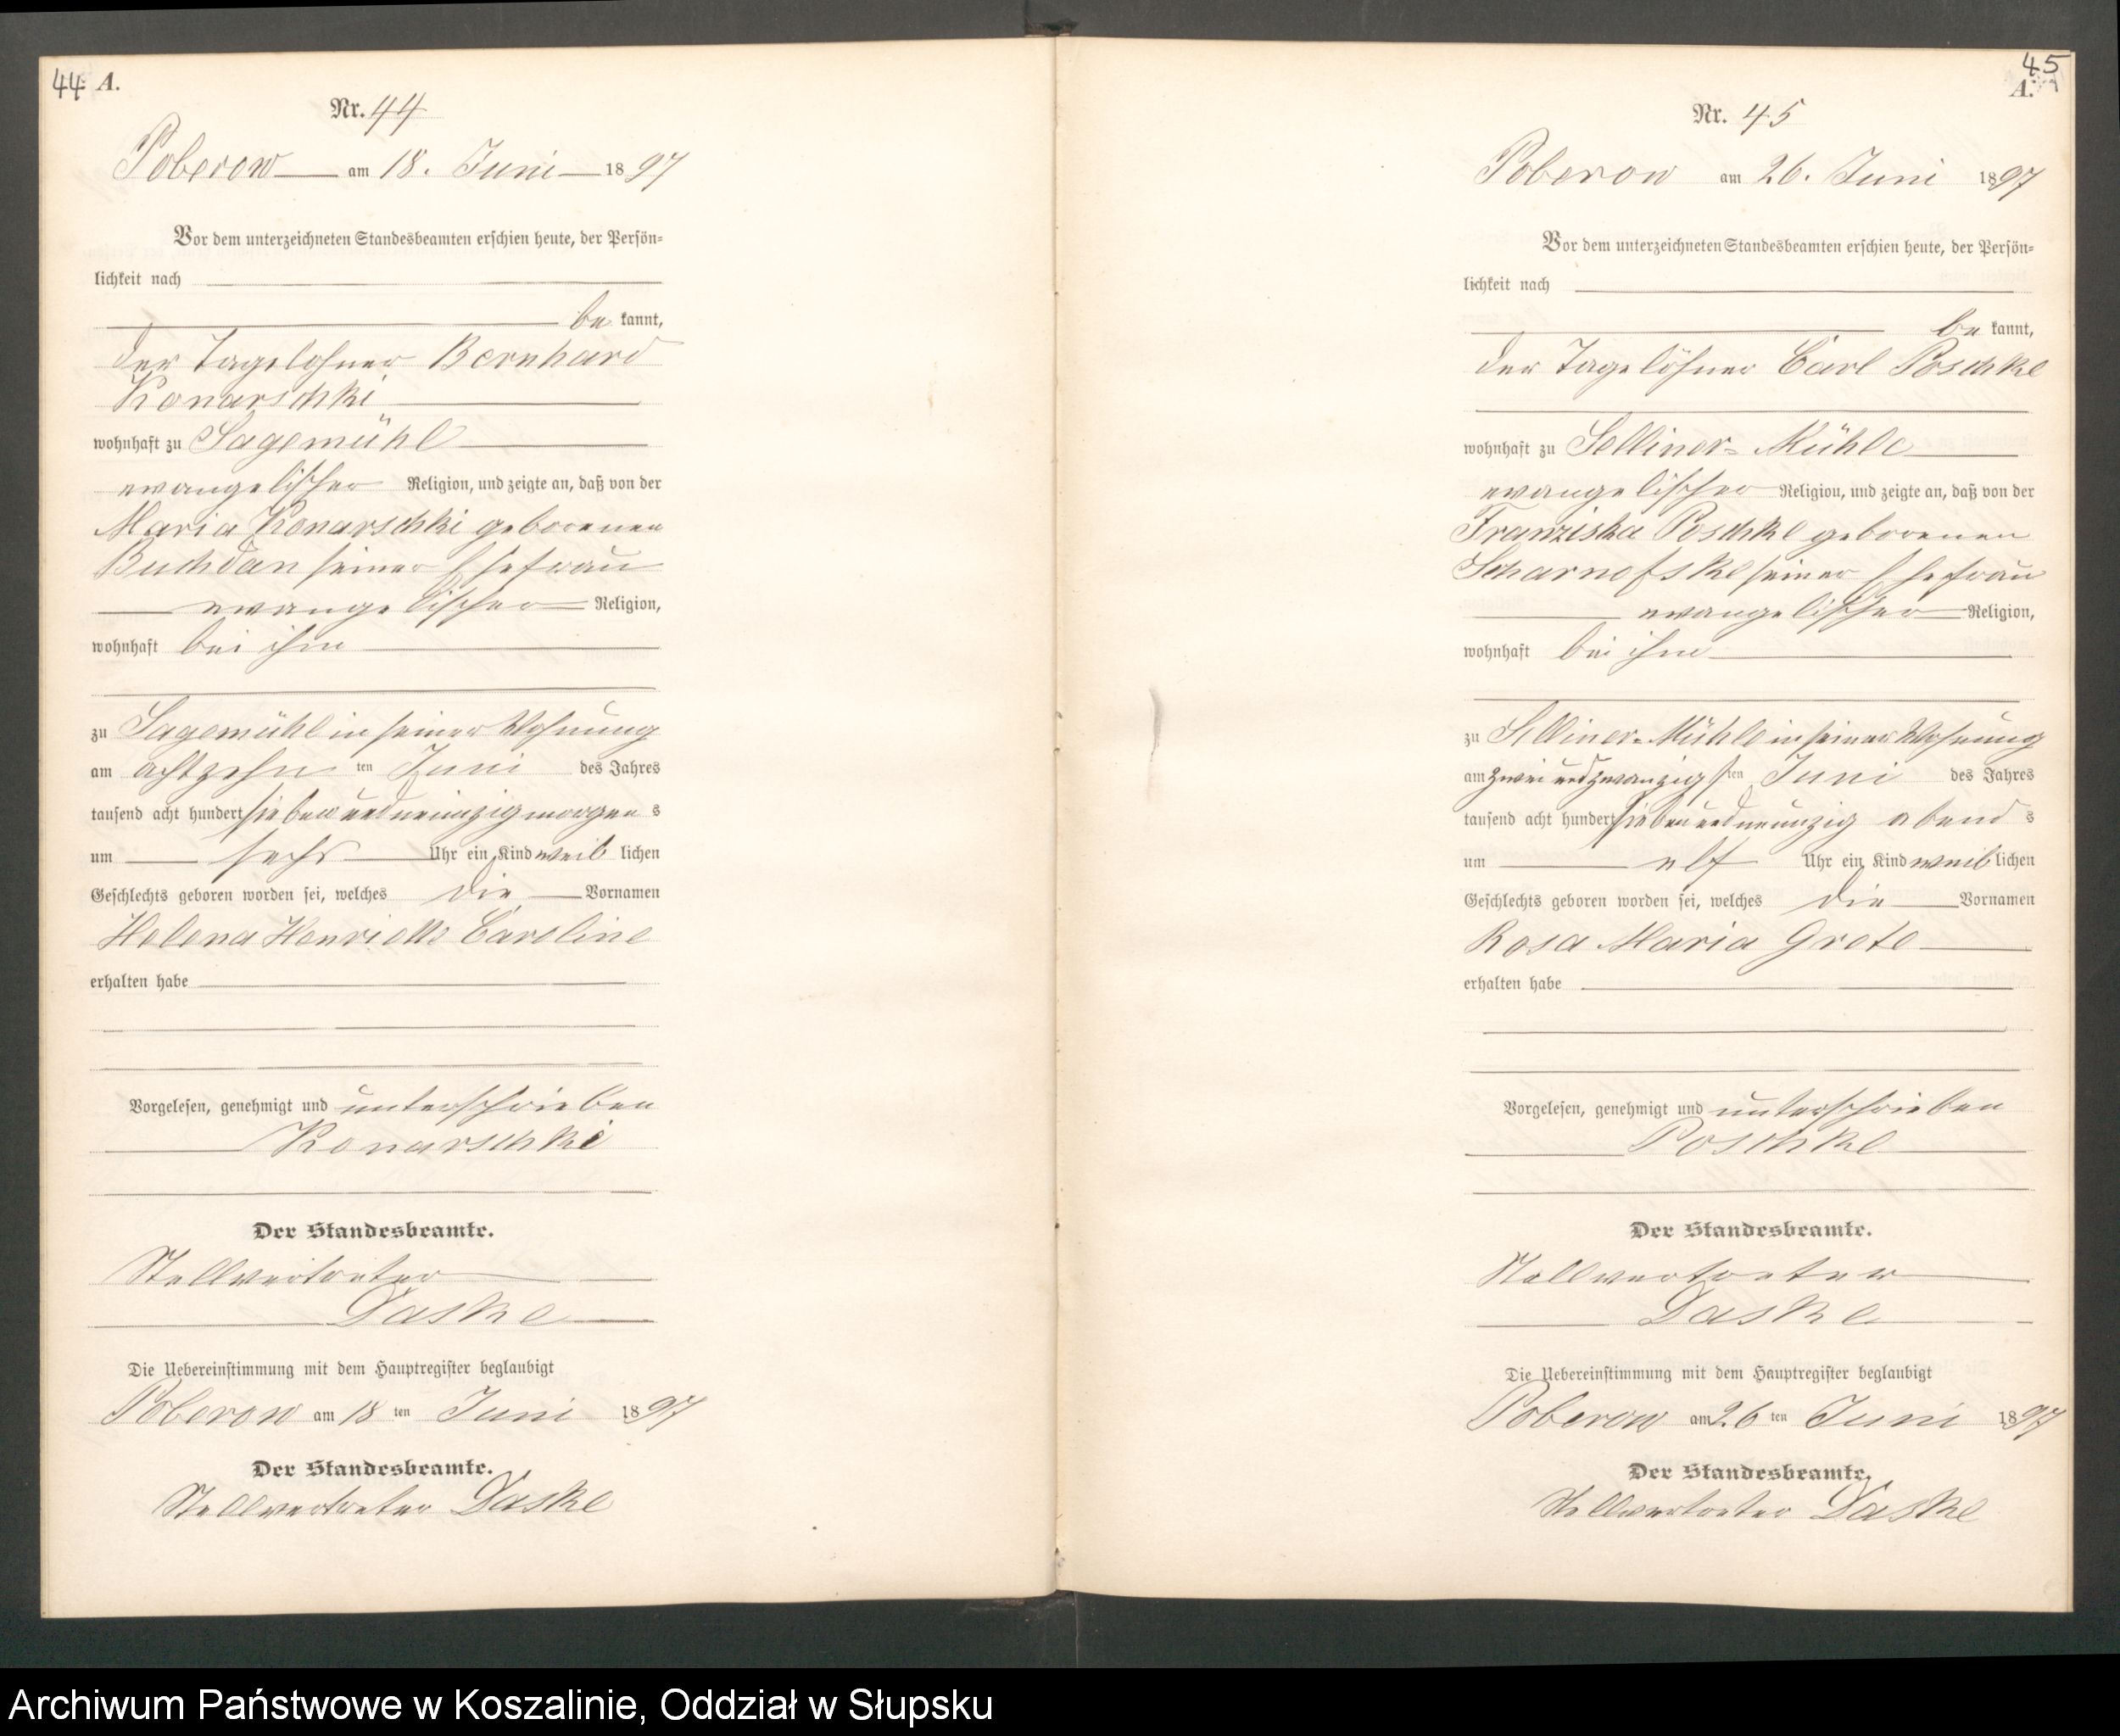 44 A.
Nr. 44
Poberow am 18. Juni 1897
Vor dem unterzeichneten Standesbeamten erschien heute, der Persön-
lichkeit nach
be kannt,
der Tagelöhner Bernhard
Konarschki
wohnhaft zu Sagemühl
evangelischer Religion, und zeigte an, daß von der
Maria Konarschki geborenen
Buchdan seiner Ehefrau
evangelischer Religion,
wohnhaft bei ihm
zu Sagemühl in seiner Wohnung
am achtzehn ten Juni des Jahres
tausend acht hundert sieben und neunzig morgen s
um sechs Uhr ein Kind weib lichen
Geschlechts geboren worden sei, welches die Vornamen
Helena Henriette Caroline
erhalten habe
Vorgelesen, genehmigt und unterschrieben
Konarschki
Der Standesbeamte.
Stellvertreter
Daske
Die Uebereinstimmung mit dem Hauptregister beglaubigt
Poberow am 18 ten Juni 1897
Der Standesbeamte.
Stellvertreter Daske
45
A.
Nr. 45
Poberow am 26. Juni 1897
Vor dem unterzeichneten Standesbeamten erschien heute, der Persön-
lichkeit nach
be kannt,
der Tagelöhner Carl Poschke
wohnhaft zu Selliner-Mühle
evangelischer Religion, und zeigte an, daß von der
Franziska Poschke geborenen
Scharnofske seiner Ehefrau
evangelischer Religion,
wohnhaft bei ihm
zu Selliner-Mühle in seiner Wohnung
am zwei und zwanzigs ten Juni des Jahres
tausend acht hundert sieben und neunzig abend s
um elf Uhr ein Kind weib lichen
Geschlechts geboren worden sei, welches die Vornamen
Rosa Maria Grete
erhalten habe
Vorgelesen, genehmigt und unterschrieben
Poschke
Der Standesbeamte.
Stellvertreter
Daske
Die Uebereinstimmung mit dem Hauptregister beglaubigt
Poberow am 26 ten Juni 1897
Der Standesbeamte.
Stellvertreter Daske
Archiwum Państwowe w Koszalinie, Oddział w Słupsku